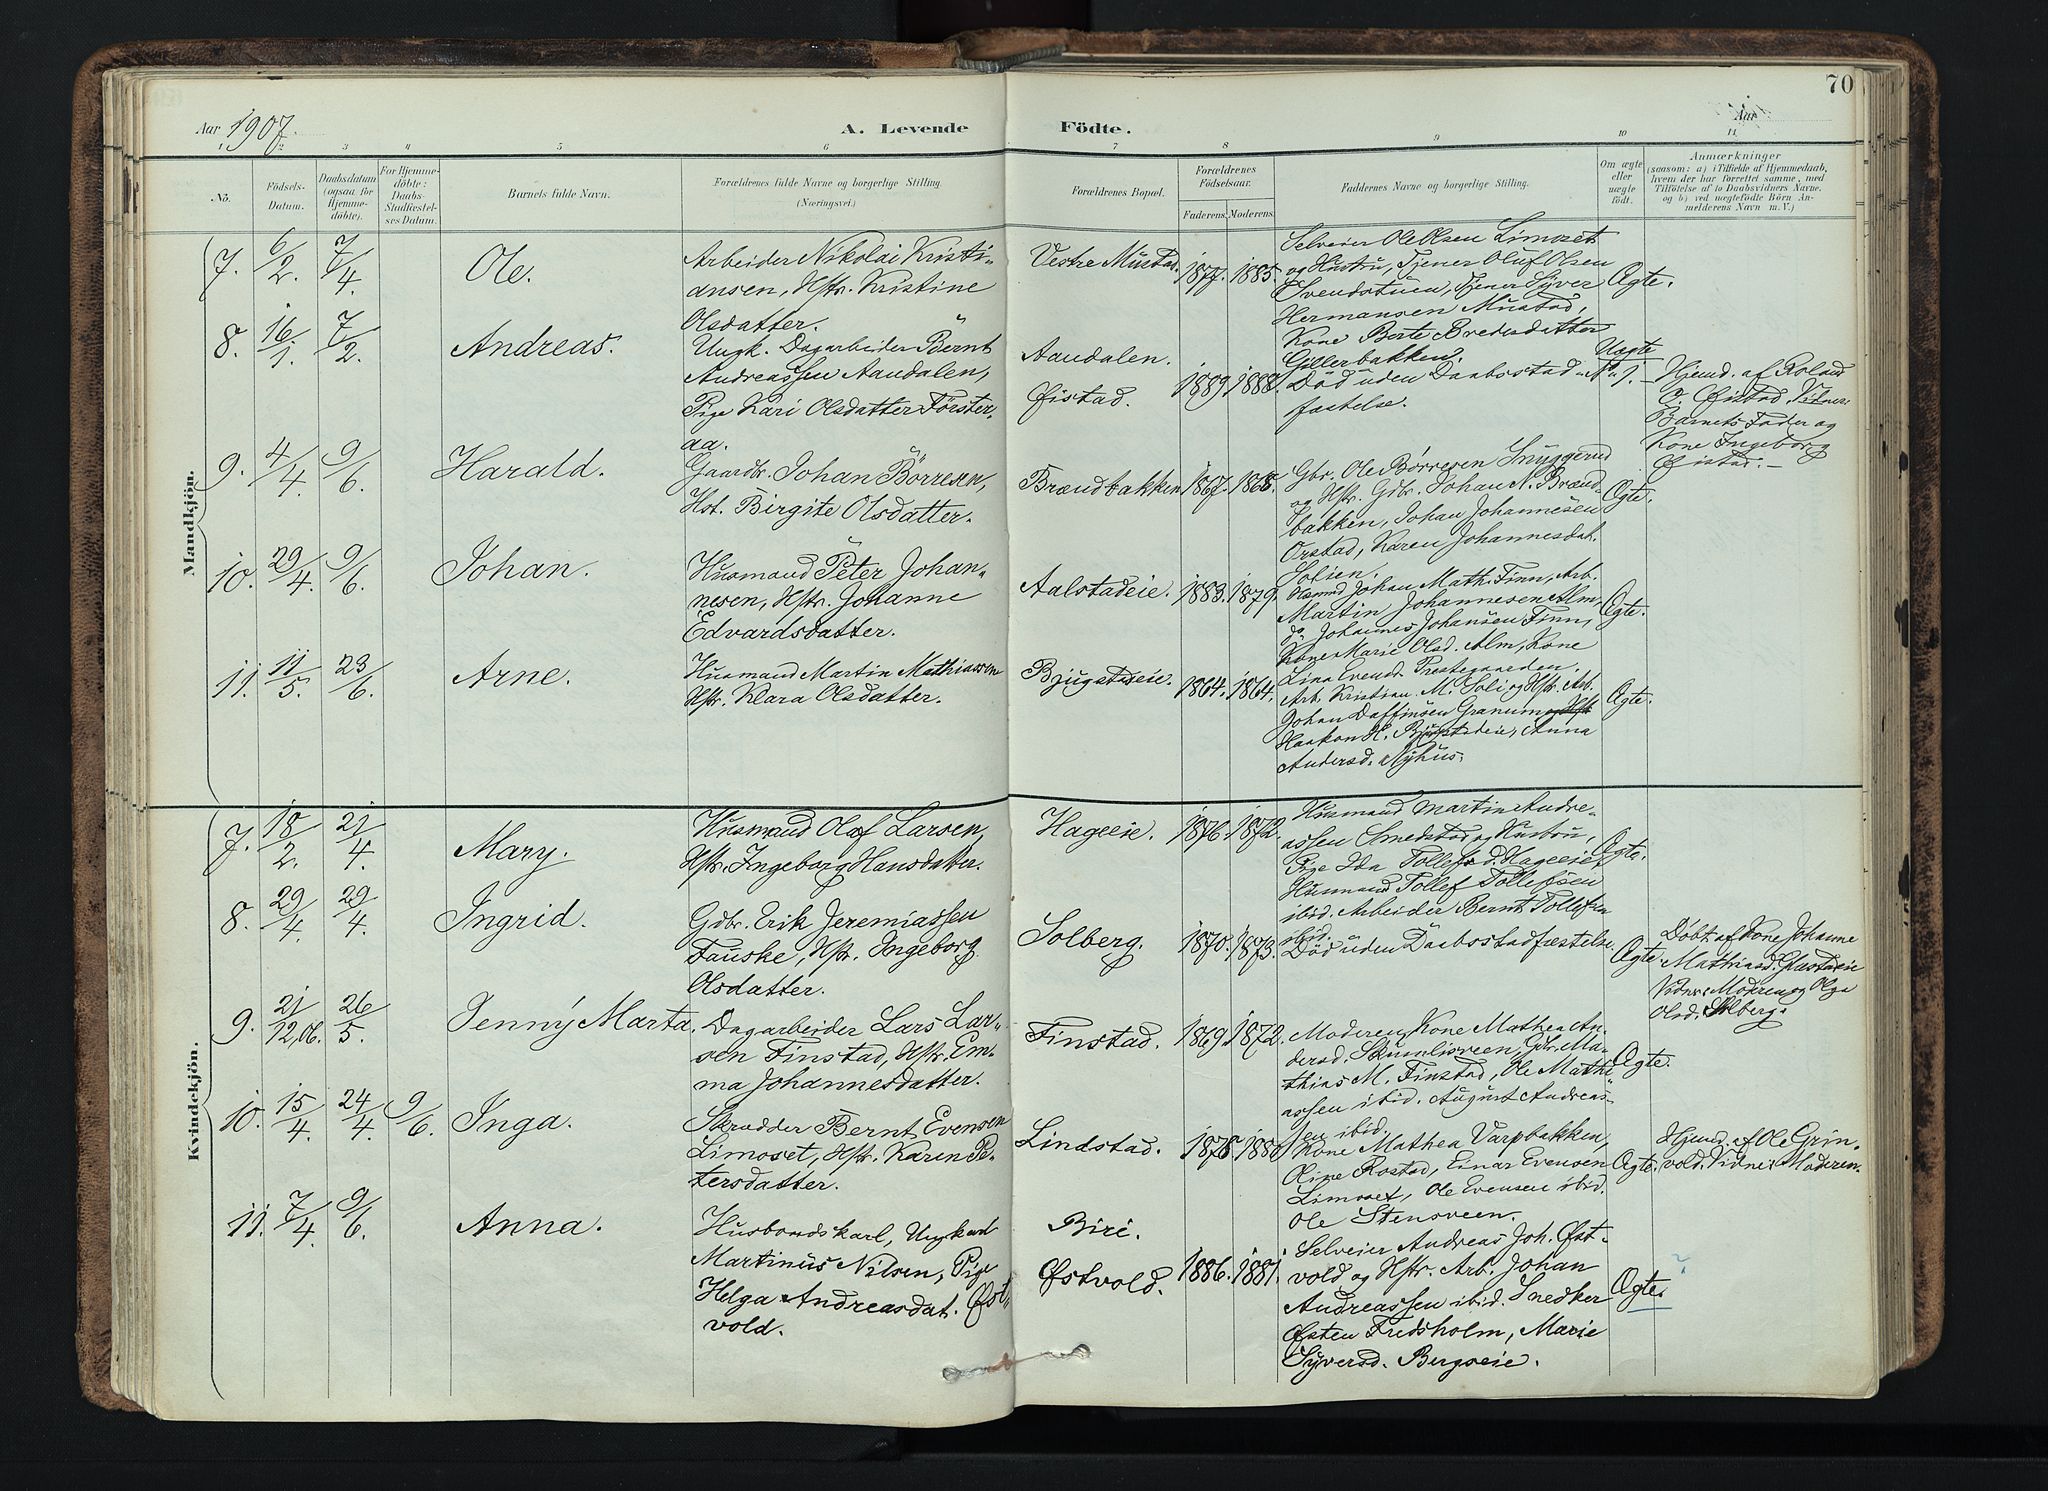 70
Aar 1907.
A. Levende Födte.
Aar
1 2 3 4 5 6 7 8 9 10 11
No.
Födsels-
Datum.
Daabsdatum
(ogsaa for
Hjemme-
döbte).
For Hjemme-
döbte:
Daabs-
Stadfæstel-
ses Datum.
Barnets fulde Navn.
Forældrenes fulde Navne og borgerlige Stilling.
(Næringsvei.)
Forældrenes Bopæl.
Forældrenes
Födselsaar.
Faderens. Moderens.
Faddernes Navne og borgerlige Stilling.
Om ægte
eller
uægte
födt.
Anmærkninger
(saasom: a) i Tilfælde af Hjemmedaab,
hvem der har forrettet samme, med
Tilföielse af to Daabsvidners Navne,
og b) ved uægtefödte Börn An-
melderens Navn m. V.)
Mandkjön.
7. 6/2. 7/4. Ole.
Arbeider Nikolai Kristi-
ansen, Hstr. Kristine
Olsdatter.
Vestre Mustad. 1874. 1885.
Selveier Ole Olsen Limoset
og Hustru, Tjener Oluf Olsen
Svendstuen, Tjener Syver
Hermansen Mustad,
Kone Berte Bredesdatter
Gillerbakken.
Ægte.
8. 16/1. 7/2. Andreas.
Ungk. Dagarbeider Bernt
Andreassen Aaudalen,
Pige Kari Olsdatter Förster-
aa.
Aaudalen.
Øistad.
1889. 1888.
Död uden Daabsstad-
fæstelse.
Uægte
Hjemd. af Roland
O. Øistad. Vidner
Barnets Fader og
Kone Ingeborg
Øistad.
9. 4/4. 9/6. Harald.
Gaardbr. Johan Börresen,
Hst. Birgite Olsdatter.
Brændbakken 1867. 1868.
Gbr. Ole Börresen Snyggerud
og Hstr. Gdbr. Johan N. Brænd-
bakken, Johan Johannesen
Orstad, Karen Johannesdat.
Solien.
Ægte.
10. 29/4. 9/6. Johan.
Husmand Peter Johan-
nesen, Hstr. Johanne
Edvardsdatter.
Aalstadeie. 1883. 1879.
Husmd Johan Math. Finn, Arb.
Martin Johannesen Alm,
do Johannes Johansen Finn,
Kone Marie Olsd. Alm, Kone
Lina Evensd. Prestegaarden.
Ægte.
11. 11/5. 23/6. Arne.
Husmand Martin Mathiassen
Hstr. Klara Olsdatter.
Bjugstadeie. 1864. 1864.
Arb. Kristian M. Soli og Hstr. Arb.
Johan Daffinsen Granum og Hst
Haakon H. Bjugstadeie, Anna
Andersd. Nyhus.
Ægte.
Kvindekjön.
7. 18/2. 21/4. Mary.
Husmand Olaf Larsen,
Hstr. Ingeborg Hansdatter.
Hageeie. 1876. 1872.
Husmand Martin Andre-
assen Smedstad og Hustru,
Pige Ida Tollefsd. Hageeie,
Husmand Tollef Tollefsen
ibid. Arbeider Bernt Tollefsen
ibid.
Ægte.
8. 29/4. 29/4. Ingrid.
Gdbr. Erik Jeremiassen
Fauske, Hstr. Ingeborg
Olsdatter.
Solberg. 1870. 1873.
Död uden Daabsstadfæstelse.
Ægte.
Döbt af Kone Johanne
Mathiasd. Gaustadeie
Vidner: Moderen og Olga
Olsd. Solberg.
9. 21/12,06. 26/5. Jenny Marta.
Dagarbeider Lars Lar-
sen Finstad, Hstr. Em-
ma Johannesdatter.
Finstad. 1869. 1872.
Moderen, Kone Mathea An-
dersd. Skumlisveen, Gdbr. Ma-
thias M. Finstad, Ole Mathi-
assen ibid. August Andreas-
sen ibid.
Ægte.
10. 15/4. 24/4. 9/6. Inga.
Skrædder Bernt Evensen
Limoset, Hstr. Karen Pe-
tersdatter.
Lindstad. 1878. 188
Kone Mathea Varpbakken,
Oline Rostad, Einar Evensen
Limoset, Ole Evensen ibid.
Ole Stensveen.
Ægte.
Hjemd. af Ole Grin-
vold. Vidne: Moderen.
11. 7/4. 9/6. Anna.
Husbondskarl, Ungkarl
Martinus Nilsen, Pige
Helga Andreasdat. Øst-
vold.
Biri.
Østvold.
1886. 1881.
Selveier Andreas Joh. Øst-
vold og Hstr. Arb. Johan
Andreassen ibid. Snedker
Østen Fredsholm, Marie
Syversd. Bergseie.
Ægte.
?